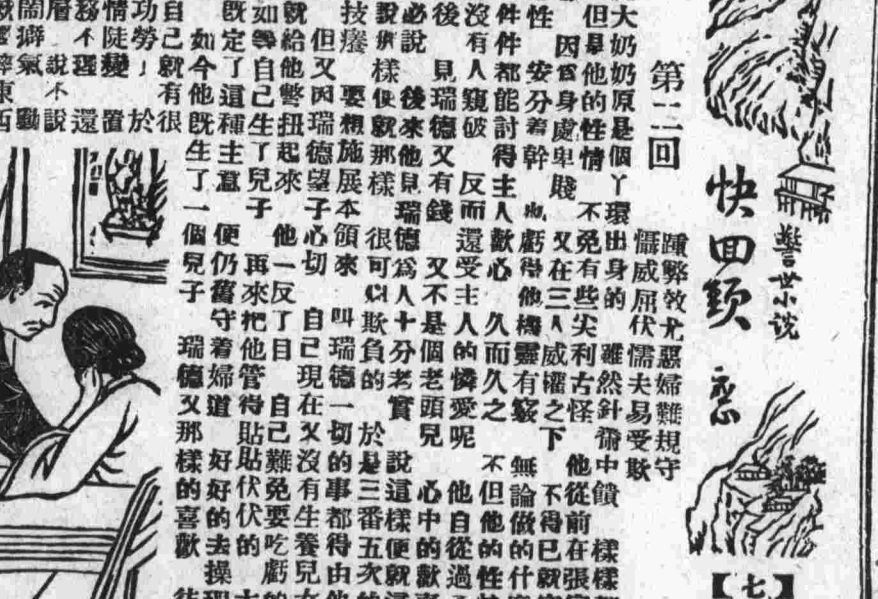 警世小說
快回頭
【七】
第二回
踵弊效尤惡婦難規守
懾威屈伏懦夫易受欺
大奶奶原是個丫環出身的 雖然針黹中饋 樣樣
但是他的性情 不免有些尖利古怪 他從前在張
因爲身處卑賤 又在三人威權之下 不得已就
性 安分着幹 也虧得他機靈有竅 無論做的什
件件都能討得主人歡心 久而久之 不但他的性
沒有人窺破 反而還受主人的憐愛呢 他自從過
後 見瑞德又有錢 又不是個老頭兒 心中的歡喜
必說 後來他見瑞德爲人十分老實 說這樣便就這
說那樣便就那樣 很可以欺負的 於是三番五次的
技癢 要想施展本領來 叫瑞德一切的事都得由他
但又因瑞德望子心切 自己現在又沒有生養兒女
就給他彆扭起來 他一反了目 自己難免要吃虧的
如等自己生了兒子 再來把他管得貼貼伏伏的
既定了這種主意 便仍舊守着婦道 好好的去操理
如今他既生了一個兒子 瑞德又那樣的喜歡
自己就有很
功勞！ 於
情陡變 置
務不 還
說不說
鬧癖氣 動
摔東西